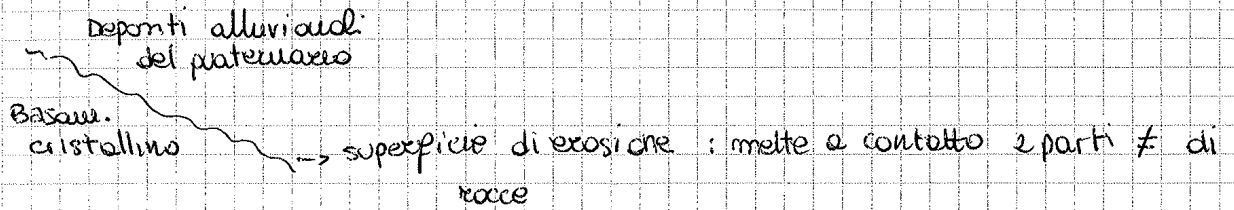 Depositi alluvionali
del quaternario
Basam.
cristallino
-> superficie di erosione : mette a contatto 2 parti ≠ di
rocce